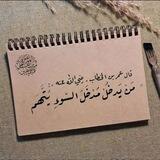 قال عمر بن الخطاب . رضي الله عنه
من يدخل مدخل السوء يتهم